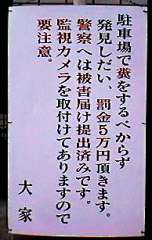 駐車場で糞をするべからず
発見しだい、罰金５万円頂きます。
警察へは被害届け提出済みです。
監視カメラを取付けてありますので
要注意。
大家